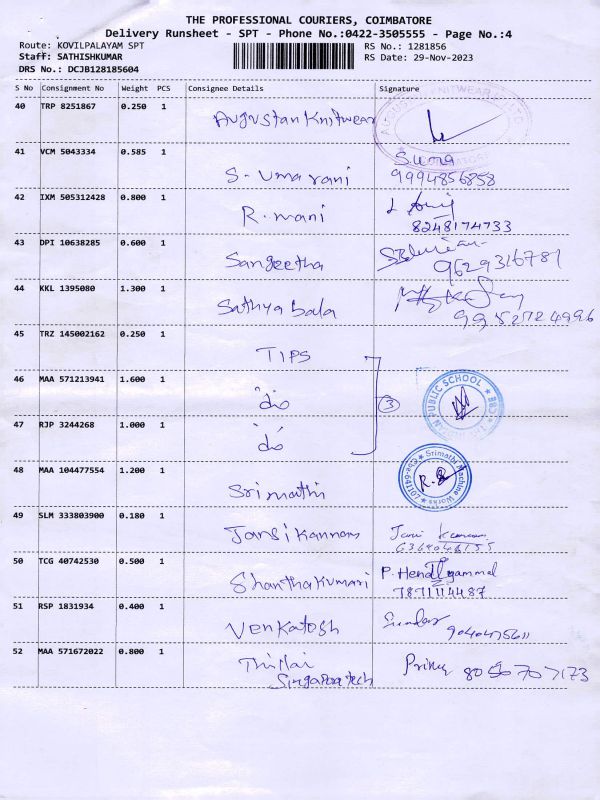 THE PROFESSIONAL COURIERS, COIMBATORE
Delivery Runsheet - SPT - Phone No.:0422-3505555 - Page No.:4
Route: KOVILPALAYAM SPT
RS No.: 1281856
Staff: SATHISHKUMAR
RS Date: 29-Nov-2023
DRS No.: DCJB128185604
S No Consignment No Weight PCS Consignee Details Signature
40 TRP 8251867 0.250 1 Augustan Knitwear
41 VCM 5043334 0.585 1 S. Uma rani Suma
9994856858
42 IXM 505312428 0.800 1 R. mani
8248174733
43 DPI 10638285 0.600 1 Sangeetha
9629316781
44 KKL 1395080 1.300 1 Sathya bala
9952724996
45 TRZ 145002162 0.250 1 TIPS
46 MAA 571213941 1.600 1 "do 3 PUBLIC SCHOOL
47 RJP 3244268 1.000 1 "do
48 MAA 104477554 1.200 1 Srimathi R.S Srimathi Machine Works
49 SLM 333803900 0.180 1 Jansi Kannan
50 TCG 40742530 0.500 1 Shanthakumari P. Hendl gammal
7871114487
51 RSP 1831934 0.400 1 Venkatesh Sundar
9040475611
52 MAA 571672022 0.800 1 Thillai 8056707173
Singapore tech